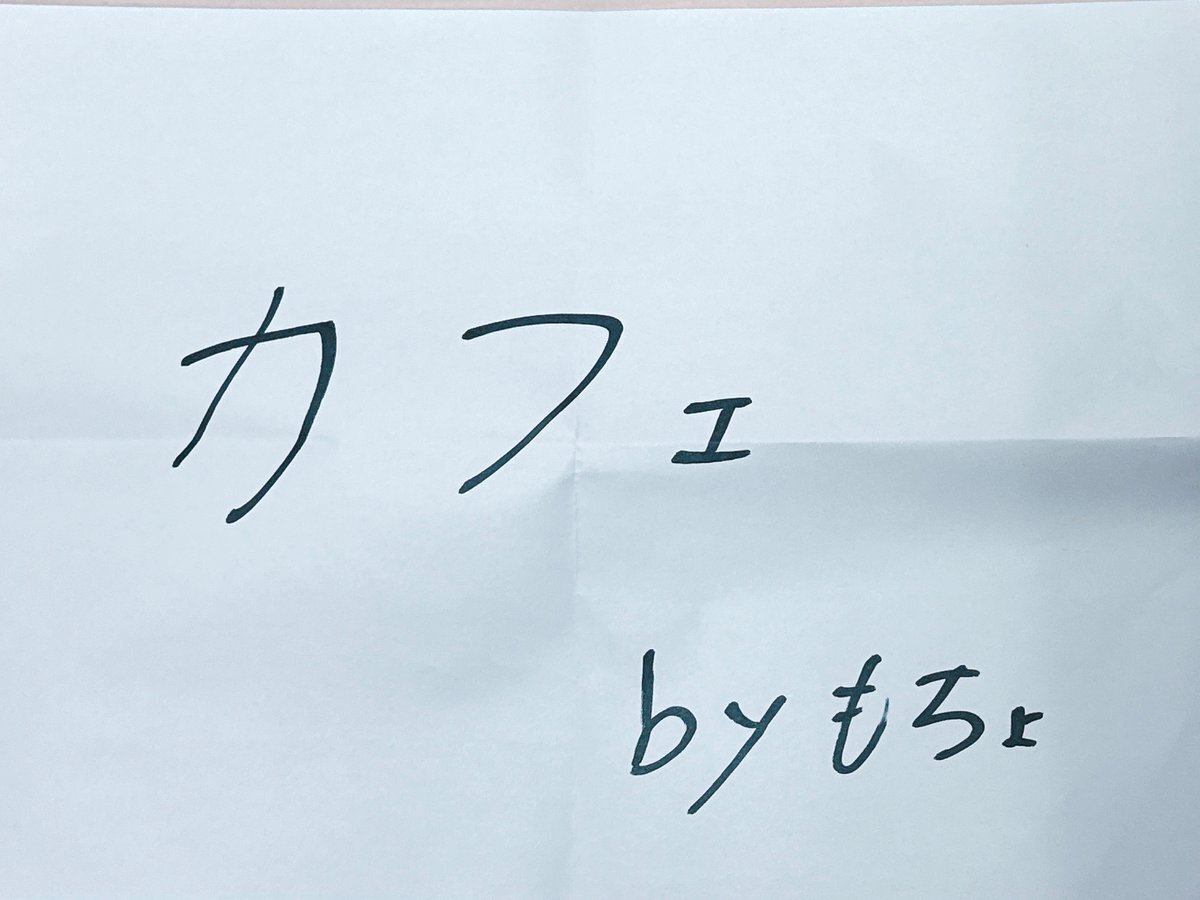 カフェ
byもちょ